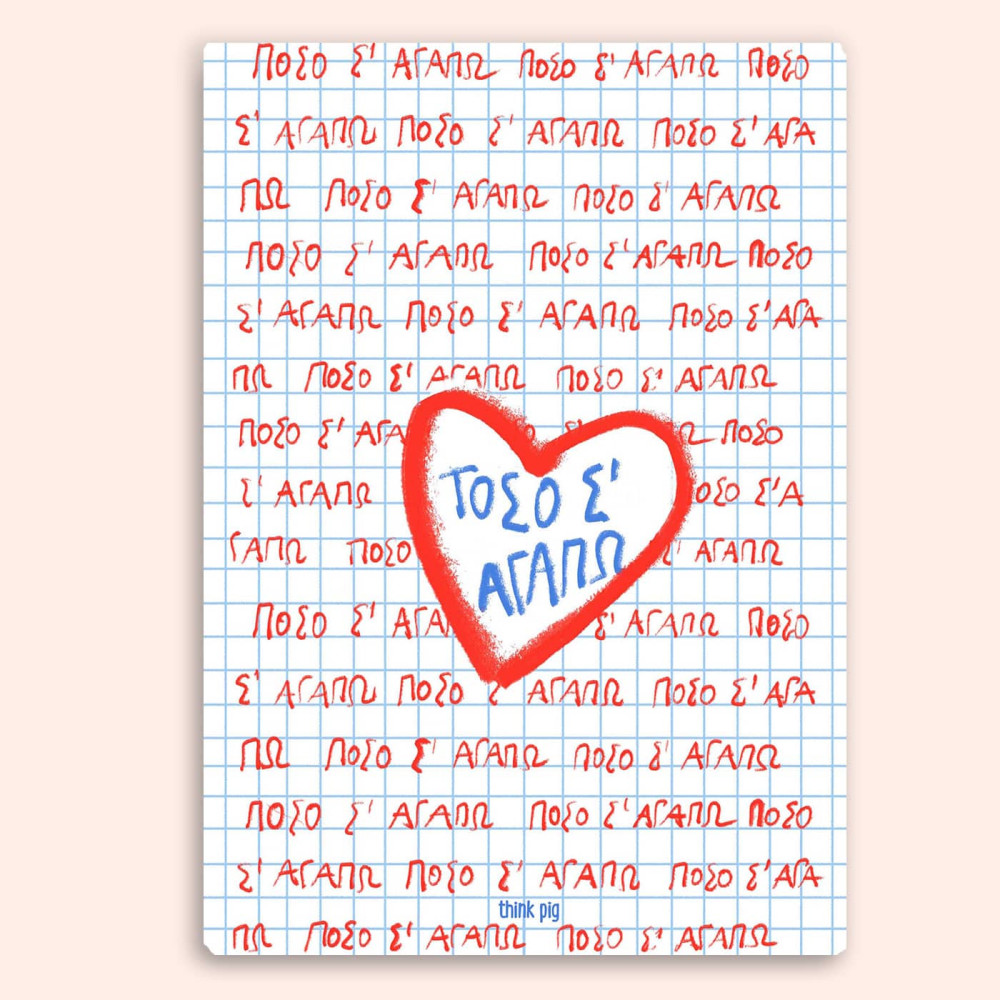 ΠΟΣΟ Σ' ΑΓΑΠΩ ΠΟΣΟ Σ' ΑΓΑΠΩ ΠΟΣΟ
Σ' ΑΓΑΠΩ ΠΟΣΟ Σ' ΑΓΑΠΩ ΠΟΣΟ Σ' ΑΓΑ
ΠΩ ΠΟΣΟ Σ' ΑΓΑΠΩ ΠΟΣΟ Σ' ΑΓΑΠΩ
ΠΟΣΟ Σ' ΑΓΑΠΩ ΠΟΣΟ Σ' ΑΓΑΠΩ ΠΟΣΟ
Σ' ΑΓΑΠΩ ΠΟΣΟ Σ' ΑΓΑΠΩ ΠΟΣΟ Σ' ΑΓΑ
ΠΩ ΠΟΣΟ Σ' ΑΓΑΠΩ ΠΟΣΟ Σ' ΑΓΑΠΩ
ΠΟΣΟ Σ' ΑΓΑ ΠΟΣΟ
Σ' ΑΓΑΠΩ ΟΣΟ Σ' Α
ΤΟΣΟ Σ'
ΓΑΠΩ ΠΟΣΟ Σ' ΑΓΑΠΩ
ΑΓΑΠΩ
ΠΟΣΟ Σ' ΑΓΑ Σ' ΑΓΑΠΩ ΠΟΣΟ
Σ' ΑΓΑΠΩ ΠΟΣΟ Σ' ΑΓΑΠΩ ΠΟΣΟ Σ' ΑΓΑ
ΠΩ ΠΟΣΟ Σ' ΑΓΑΠΩ ΠΟΣΟ Σ' ΑΓΑΠΩ
ΠΟΣΟ Σ' ΑΓΑΠΩ ΠΟΣΟ Σ' ΑΓΑΠΩ ΠΟΣΟ
Σ' ΑΓΑΠΩ ΠΟΣΟ Σ' ΑΓΑΠΩ ΠΟΣΟ Σ' ΑΓΑ
think pig
ΠΩ ΠΟΣΟ Σ' ΑΓΑΠΩ ΠΟΣΟ Σ' ΑΓΑΠΩ